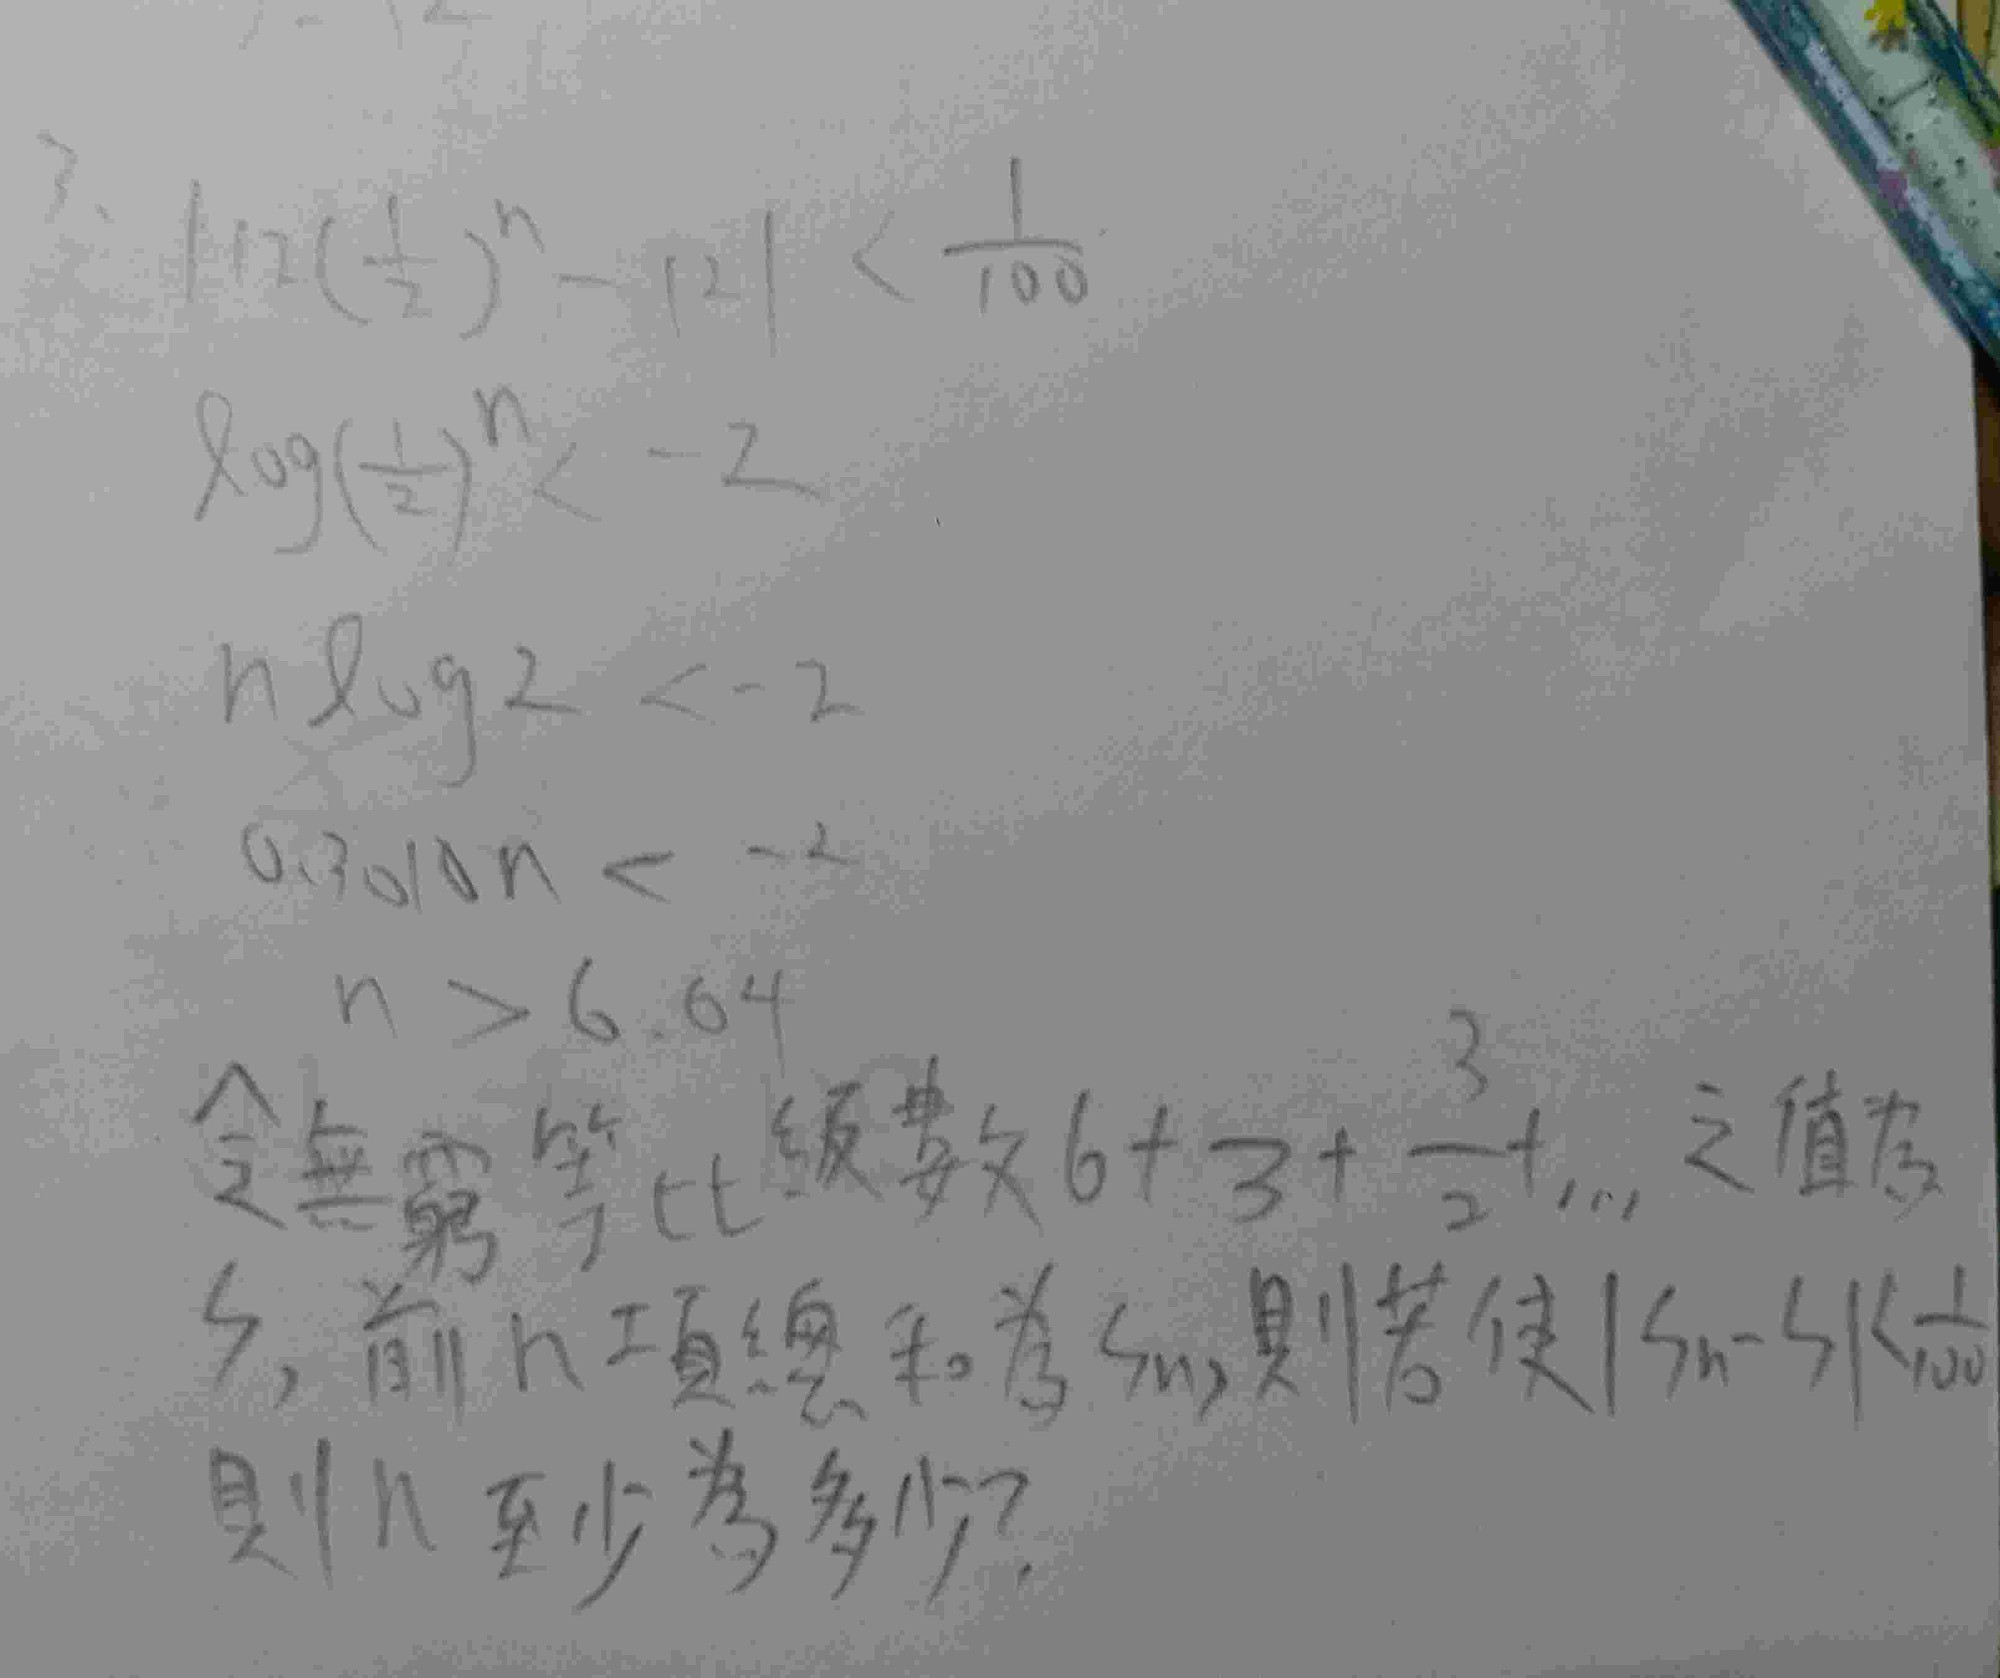 3. |12(1/2)^n - 12| < 1/100
log(1/2)^n < -2
n log2 < -2
0.3010n < -2
n > 6.64
令無窮等比級數6+3+3/2+...之值為
S,前n項總和為Sn,則若使|Sn-S|<1/100
則n至少為多少?